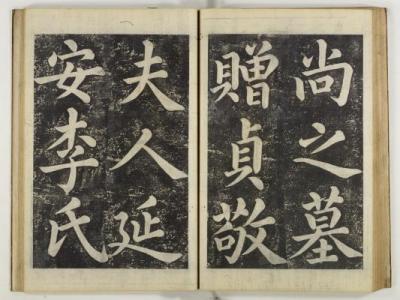 尚之墓
贈貞敬
夫人延
安李氏